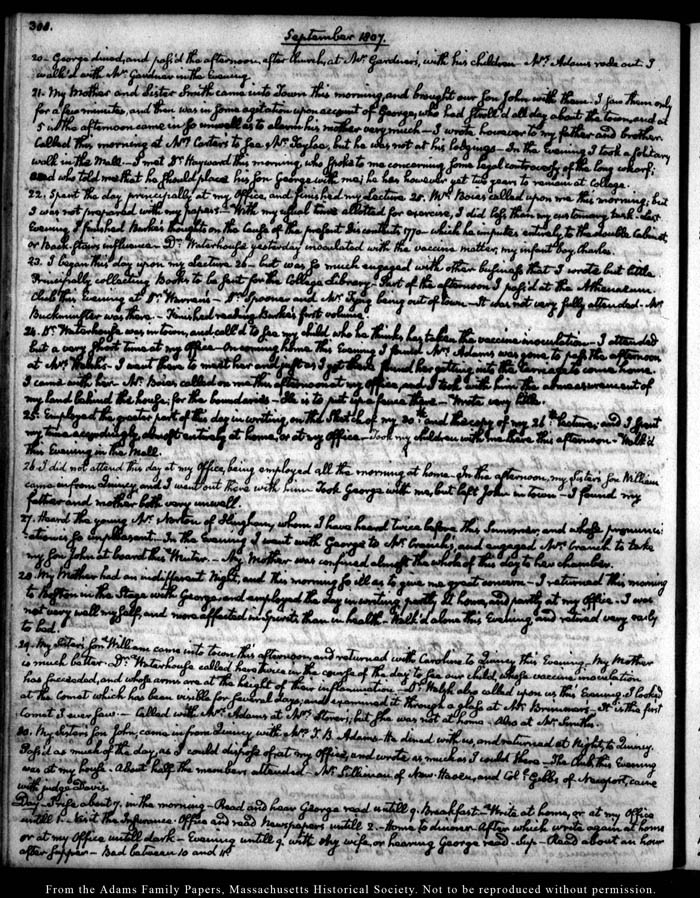 300.
September 1807.
20. George dined, and pass'd the afternoon, after Church, at Mr. Gardner's, with his children. Mrs. Adams rode out. I
walk'd with Mr. Gardner in the Evening.
21. My Mother and Sister Smith came into Town this morning, and brought our Son John with them. I saw them only
for a few minutes, and then was in some agitation upon account of George, who had stroll'd all day about the town, and at
5 in the afternoon came in so unwell as to alarm his mother very much — I wrote however to my father and brother.
Called this morning at Mrs. Carter's to see Mr. Foster, but he was not at his lodgings — In the Evening I took a solitary
walk in the Mall — I met Dr. Hayward this morning, who spoke to me concerning some legal controversy of the long wharf;
and who told me that he should place his Son George with me; he has however yet two years to remain at College.
22. Spent the day principally at my Office, and finished my lecture 25. Mr. Boies called upon me this morning, but
I was not prepared with my papers — With my usual time allotted for exercise, I did less than my customary task. In the
Evening I finished Burke's thoughts on the Cause of the present Discontents, 1770 — which he imputes entirely to the double Cabinet,
or Back-stairs influence — Dr. Waterhouse yesterday inoculated with the vaccine matter, my infant boy Charles.
23. I began this day upon my lecture 26. but was so much engaged with other business that I wrote but little.
Principally collecting Books to be sent for the College Library — Part of the afternoon I pass'd at the Athenaeum.
Club this evening at Dr. Warren's — Dr. Spooner and Mr. Tyng being out of town — It was not very fully attended. Mr.
Buckminster was there. — Finished reading Burke's first volume.
24. Dr. Waterhouse was in town, and call'd to see my child who he thinks has taken the vaccine inoculation — I attended
but a very short time at my Office — On coming home this Evening I found Mrs. Adams was gone to pass the afternoon
at Mrs. Welsh's — I went there to meet her and just as I got there found her getting into the Carriage to come home.
I came with her. Mr. Boies called on me this afternoon at my office, and I took with him the admeasurement of
my land behind the house; for the boundaries — He is to put up a fence there — Wrote very little.
25. Employed the greater part of this day in writing, on the Sketch of my 30th. and the copy of my 26th. lecture; and I spent
my time accordingly almost entirely at home, or at my Office — Took my children with me there this afternoon. Walk'd
this Evening in the Mall.
26. I did not attend this day at my Office, being employed all the morning at home — In the afternoon, my Sister's Son William
came in from Quincy, and I went out there with him — Took George with me, but left John in town — I found my
father and mother both very unwell.
27. Heard the young Mr. Norton of Hingham, whom I have heard twice before this Summer, and whose pronunci:
:ation is so unpleasant. In the Evening I went with George to Mr. Cranch's, and engaged Mrs. Cranch to take
my Son John at board this Winter. — My Mother was confined almost the whole of this day to her chamber.
28. My Mother had an indifferent Night, and this morning so ill as to give me great concern — I returned this morning
to Boston in the Stage with George, and employed the day in writing, partly at home, and partly at my Office. I was
not very well myself, and more affected in Spirits than in health — Walk'd alone this Evening, and retired very early
to bed.
29. My Sister's Son William came into town this afternoon, and returned with Caroline to Quincy this Evening. My Mother
is much better. Dr. Waterhouse called here twice in the course of the day to see our child, whose vaccine inoculation
has succeeded, and whose arms are at the height of their inflammation — Dr. Welsh also called upon us this Evening. I looked
at the Comet which has been visible for several days; and examined it through a glass at Mr. Brimmer's — It is the first
Comet I ever saw. — Called with Mrs. Adams at Mrs. Storer's, but she was not at home. Also at Mr. Smith's.
30. My Sister's Son, John, came in from Quincy with Mrs. T. B. Adams. He dined with us, and returned at Night, to Quincy.
Pass'd as much of the day, as I could dispose of at my Office, and wrote as much as I could there — The Club this Evening
was at my house. About half the members attended — Mr. Silliman of New-Haven, and Coll. Gibbs of Newport, came
with judge Davis.
Day — I rise about 7. in the morning — Read and hear George read untill 9. Breakfast. Write at home, or at my Office
untill 1. Visit the Insurance-Office and read Newspapers untill 2. Home to dinner. After which write again at home
or at my Office untill dark — Evening untill 9. with My wife, or hearing George read. Sup — Read about an hour
after supper — Bed between 10 and 11.
From the Adams Family Papers, Massachusetts Historical Society. Not to be reproduced without permission.